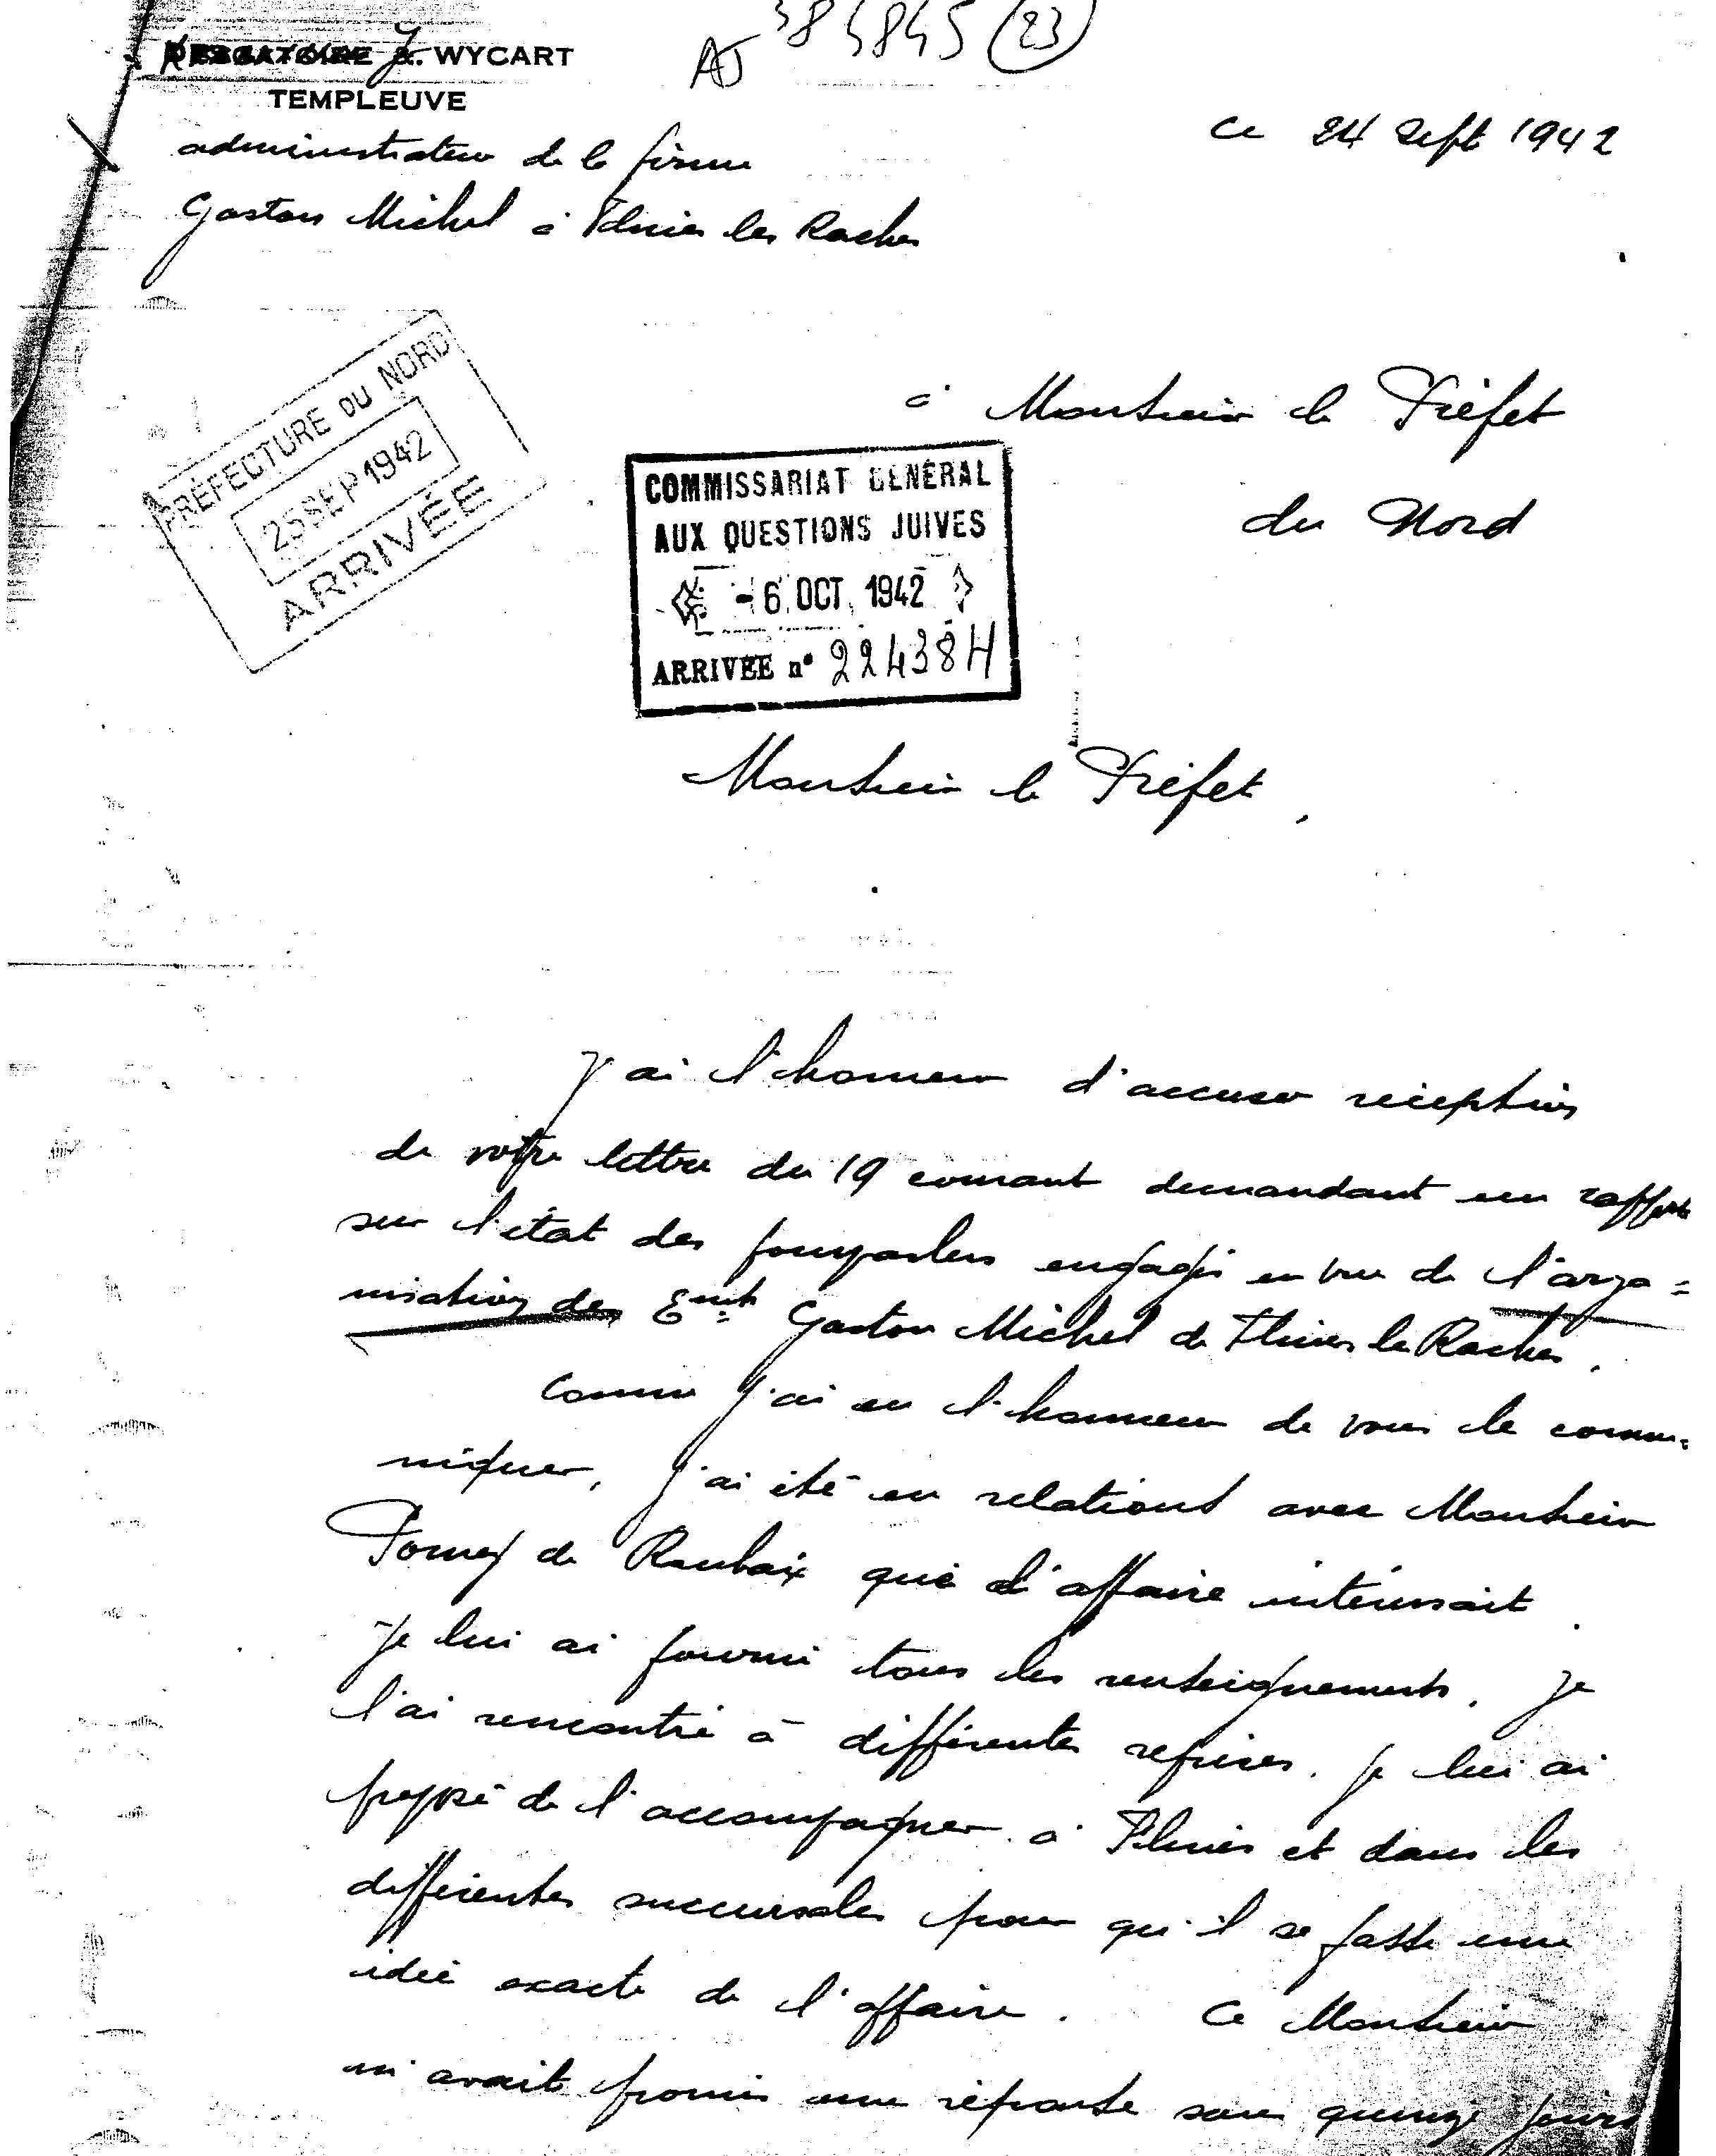 AJ 38 4845 (23)
J. WYCART
TEMPLEUVE
ce 24 Sept 1942
administrateur de la firme
Gaston Michel à Flines les Raches
PRÉFECTURE DU NORD
25 SEP 1942
ARRIVÉE
à Monsieur le Préfet
du Nord
COMMISSARIAT GÉNÉRAL
AUX QUESTIONS JUIVES
- 6 OCT. 1942
ARRIVÉE n° 22438H
Monsieur le Préfet,
J'ai l'honneur d'accuser réception
de votre lettre du 19 courant demandant un rapport
sur l'état des pourparlers engagés en vue de l'arya=
nisation des Ets Gaston Michel de Flines les Raches.
Comme j'ai eu l'honneur de vous le commu=
niquer, j'ai été en relations avec Monsieur
de Roubaix que l'affaire intéressait.
Je lui ai fourni tous les renseignements. Je
l'ai rencontré à différentes reprises. Je lui ai
proposé de l'accompagner à Flines et dans les
différentes succursales pour qu'il se fasse une
idée exacte de l'affaire. Ce Monsieur
m'avait promis une réponse sous quinze jours